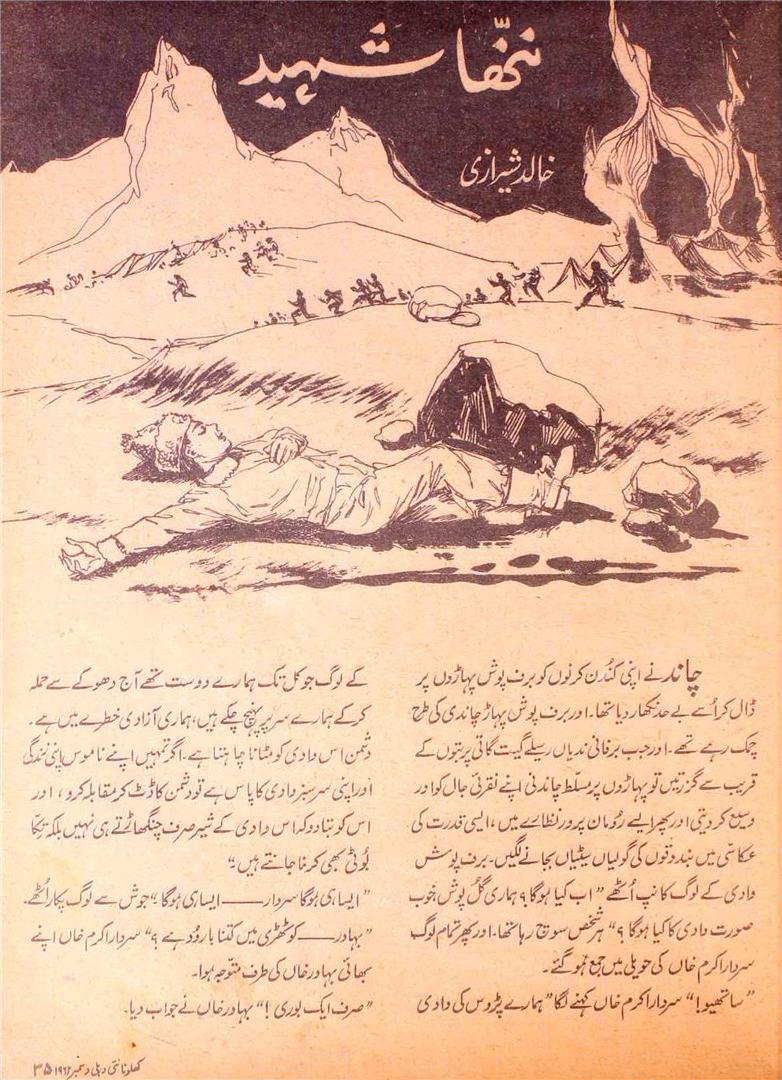 ننّھا شہید
خالد شیرازی
چاند نے اپنی کُندن کرنوں کو برف پوش پہاڑوں پر
ڈال کر اُسے بے حد نکھار دیا تھا۔ اور برف پوش پہاڑ چاندی کی طرح
چمک رہے تھے۔ اور جب برفانی ندیاں رسیلے گیت گاتی پربتوں کے
قریب سے گزرتیں تو پہاڑوں پر مسلط چاندنی اپنے نقرئی جال کو اور
وسیع کر دیتی اور پھر ایسے رُومان پرور نظارے میں، ایسی قدرت کی
عکاسی میں بندوقوں کی گولیاں سیٹیاں بجانے لگیں۔ برف پوش
وادی کے لوگ کانپ اُٹھے "اب کیا ہوگا؟ ہماری گُل پوش خوب
صورت وادی کا کیا ہوگا؟" ہر شخص سوچ رہا تھا۔ اور پھر تمام لوگ
سردار اکرم خاں کی حویلی میں جمع ہو گئے۔
"ساتھیو!" سردار اکرم خاں کہنے لگا "ہمارے پڑوس کی وادی
کے لوگ جو کل تک ہمارے دوست تھے آج دھوکے سے حملہ
کر کے ہمارے سر پر پہنچ چکے ہیں، ہماری آزادی خطرے میں ہے۔
دشمن اس وادی کو مٹانا چاہتا ہے۔ اگر تمہیں اپنے ناموس اپنی زندگی
اور اپنی سرسبز وادی کا پاس ہے تو دشمن کا ڈٹ کر مقابلہ کرو، اور
اس کو بتا دو کہ اس وادی کے شیر صرف چنگھاڑتے ہی نہیں بلکہ تِکّا
بُوٹی بھی کرنا جانتے ہیں۔"
"ایسا ہی ہوگا سردار —— ایسا ہی ہوگا۔" جوش سے لوگ پکار اُٹھے۔
"بہادر —— کوٹھڑی میں کتنا بارود ہے؟" سردار اکرم خاں اپنے
بھائی بہادر خاں کی طرف متوجہ ہوا۔
"صرف ایک بوری!" بہادر خاں نے جواب دیا۔
کھلونا نئی دہلی دسمبر ۱۹۶۲ ۳۵